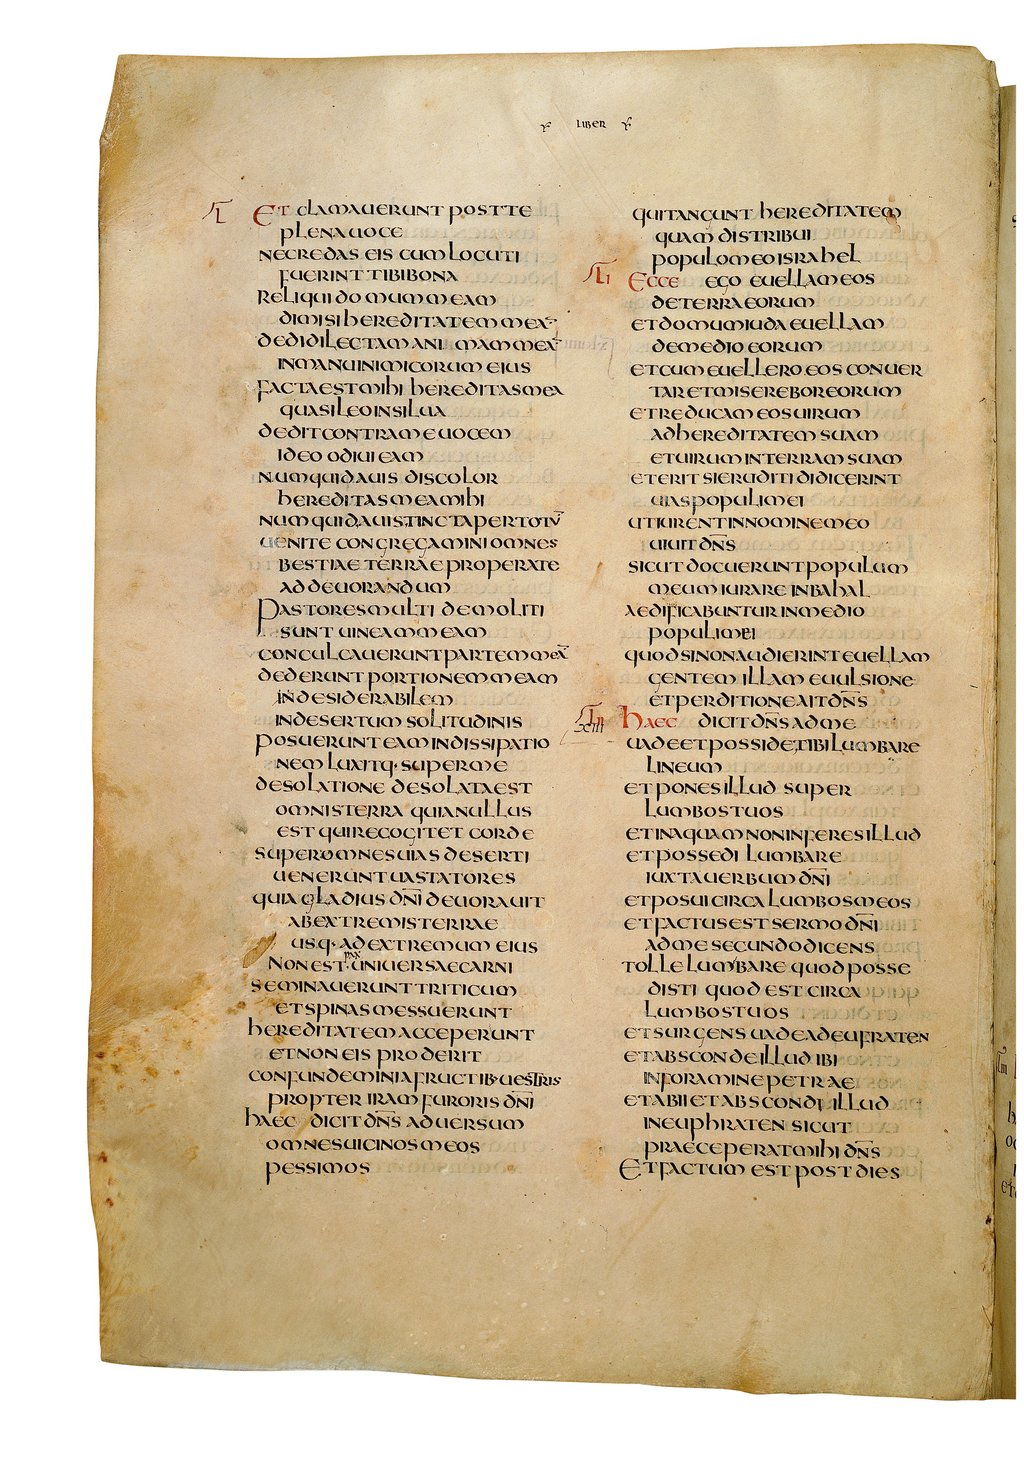 LIBER
ET CLAMAUERUNT POST TE
PLENA UOCE
NE CREDAS EIS CUM LOCUTI
FUERINT TIBI BONA
RELIQUI DOMUM MEAM
DIMISI HEREDITATEM MEĀ
DEDI DILECTAM ANIMAM MEĀ
IN MANU INIMICORUM EIUS
FACTA EST MIHI HEREDITAS MEA
QUASI LEO IN SILUA
DEDIT CONTRA ME UOCEM
IDEO ODIUI EAM
NUMQUID AUIS DISCOLOR
HEREDITAS MEA MIHI
NUMQUID AUIS TINCTA PER TOTŪ
UENITE CONGREGAMINI OMNES
BESTIAE TERRAE PROPERATE
AD DEUORANDUM
PASTORES MULTI DEMOLITI
SUNT UINEAM MEAM
CONCULCAUERUNT PARTEM MEĀ
DEDERUNT PORTIONEM MEAM
IN DESIDERABILEM
IN DESERTUM SOLITUDINIS
POSUERUNT EAM IN DISSIPATIO
NEM LUXITQ· SUPER ME
DESOLATIONE DESOLATA EST
OMNIS TERRA QUIA NULLUS
EST QUI RECOGITET CORDE
SUPER OMNES UIAS DESERTI
UENERUNT UASTATORES
QUIA GLADIUS DN̄I DEUORAUIT
AB EXTREMIS TERRAE
USQ· AD EXTREMUM EIUS
NON EST PAX UNIUERSAE CARNI
SEMINAUERUNT TRITICUM
ET SPINAS MESSUERUNT
HEREDITATEM ACCEPERUNT
ET NON EIS PRODERIT
CONFUNDEMINI A FRUCTIB· UESTRIS
PROPTER IRAM FURORIS DN̄I
HAEC DICIT DN̄S ADUERSUM
OMNES UICINOS MEOS
PESSIMOS
QUI TANGUNT HEREDITATEM
QUAM DISTRIBUI
POPULO MEO ISRAHEL
ECCE EGO EUELLAM EOS
DE TERRA EORUM
ET DOMUM IUDA EUELLAM
DE MEDIO EORUM
ET CUM EUELLERO EOS CONUER
TAR ET MISEREBOR EORUM
ET REDUCAM EOS UIRUM
AD HEREDITATEM SUAM
ET UIRUM IN TERRAM SUAM
ET ERIT SI ERUDITI DIDICERINT
UIAS POPULI MEI
UT IURENT IN NOMINE MEO
UIUIT DN̄S
SICUT DOCUERUNT POPULUM
MEUM IURARE IN BAHAL
AEDIFICABUNTUR IN MEDIO
POPULI MEI
QUOD SI NON AUDIERINT EUELLAM
GENTEM ILLAM EUULSIONE
ET PERDITIONE AIT DN̄S
HAEC DICIT DN̄S AD ME
UADE ET POSSIDE TIBI LUMBARE
LINEUM
ET PONES ILLUD SUPER
LUMBOS TUOS
ET IN AQUAM NON INFERES ILLUD
ET POSSEDI LUMBARE
IUXTA UERBUM DN̄I
ET POSUI CIRCA LUMBOS MEOS
ET FACTUS EST SERMO DN̄I
AD ME SECUNDO DICENS
TOLLE LUMBARE QUOD POSSE
DISTI QUOD EST CIRCA
LUMBOS TUOS
ET SURGENS UADE AD EUFRATEN
ET ABSCONDE ILLUD IBI
IN FORAMINE PETRAE
ET ABII ET ABSCONDI ILLUD
IN EUPHRATEN SICUT
PRAECEPERAT MIHI DN̄S
ET FACTUM EST POST DIES